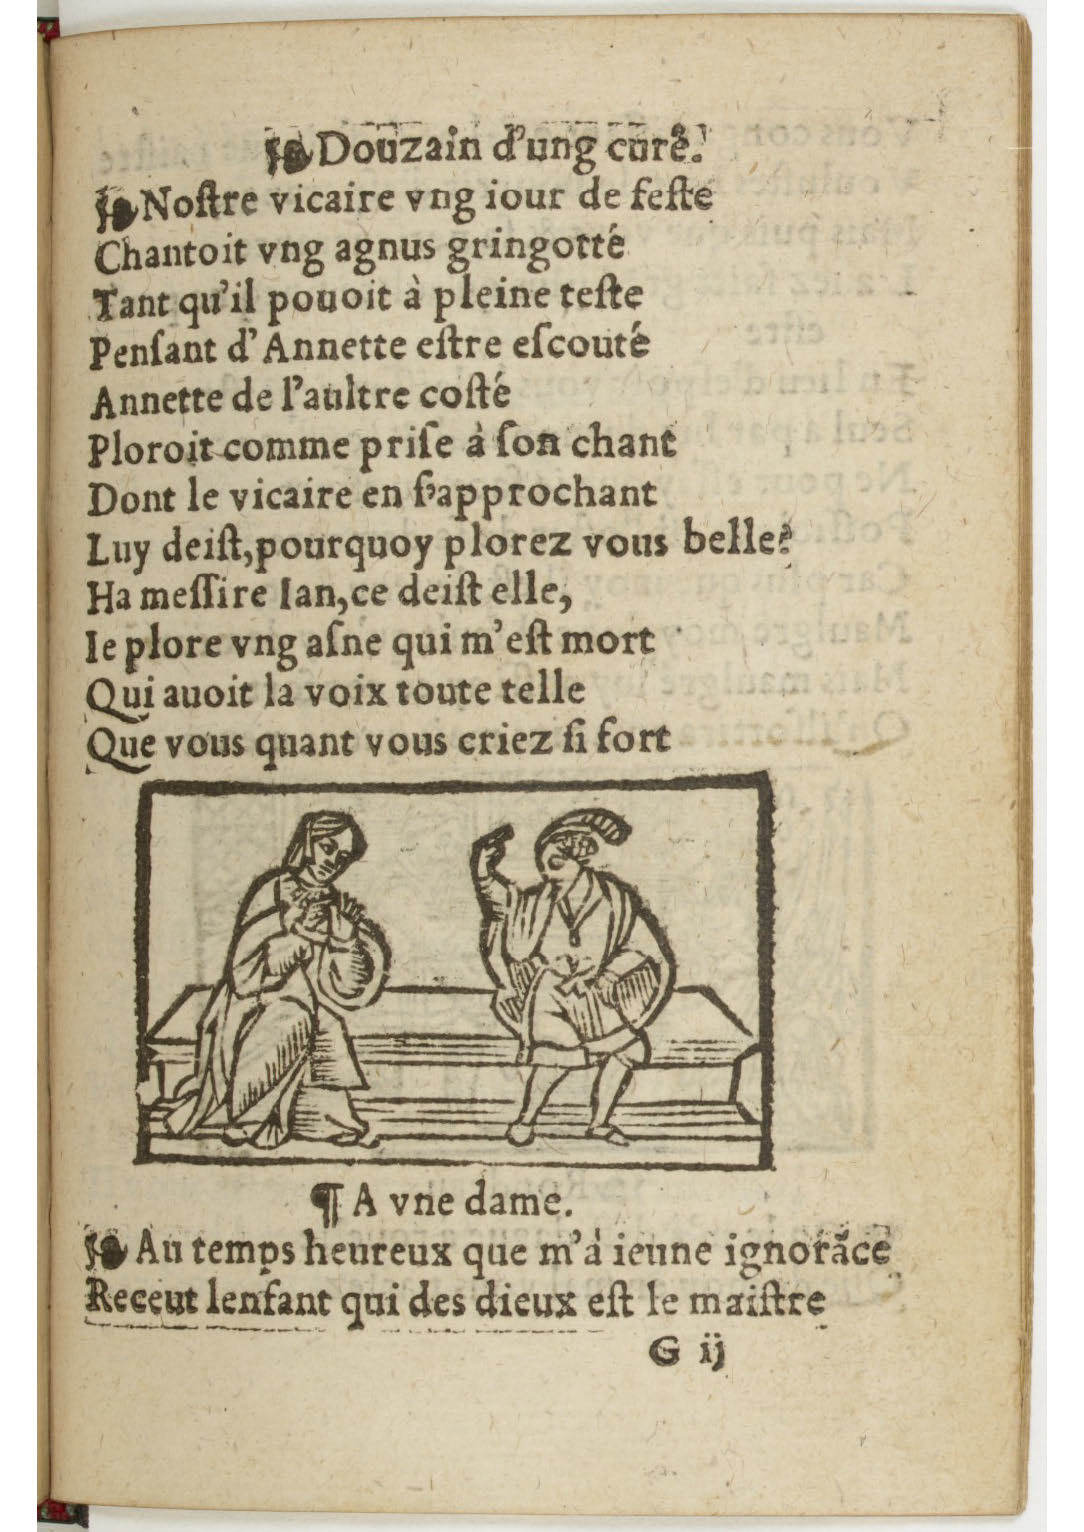 ❧ Douzain d'ung curé.
❧ Noſtre vicaire vng iour de feſte
Chantoit vng agnus gringotté
Tant qu'il pouoit à pleine teſte
Penſant d'Annette eſtre eſcouté
Annette de l'aultre coſté
Ploroit comme priſe à ſon chant
Dont le vicaire en ſ'approchant
Luy deiſt, pourquoy plorez vous belle?
Ha meſſire Ian, ce deiſt elle,
Ie plore vng aſne qui m'eſt mort
Qui auoit la voix toute telle
Que vous quant vous criez ſi fort
¶ A vne dame.
❧ Au temps heureux que m'à ieune ignorãce
Receut lenfant qui des dieux eſt le maiſtre
G ij